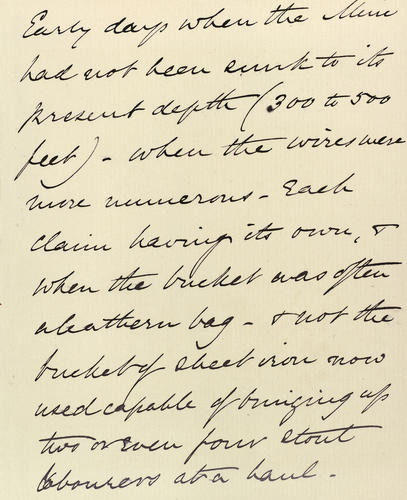 Early days when the Mine
had not been sunk to its
present depth (300 to 500
feet) - when the wires were
more numerous - Each
claim having its own, &
when the bucket was often
a leathern bag - & not the
bucket of sheet iron now
used capable of bringing up
two or even four stout
labourers at a haul -